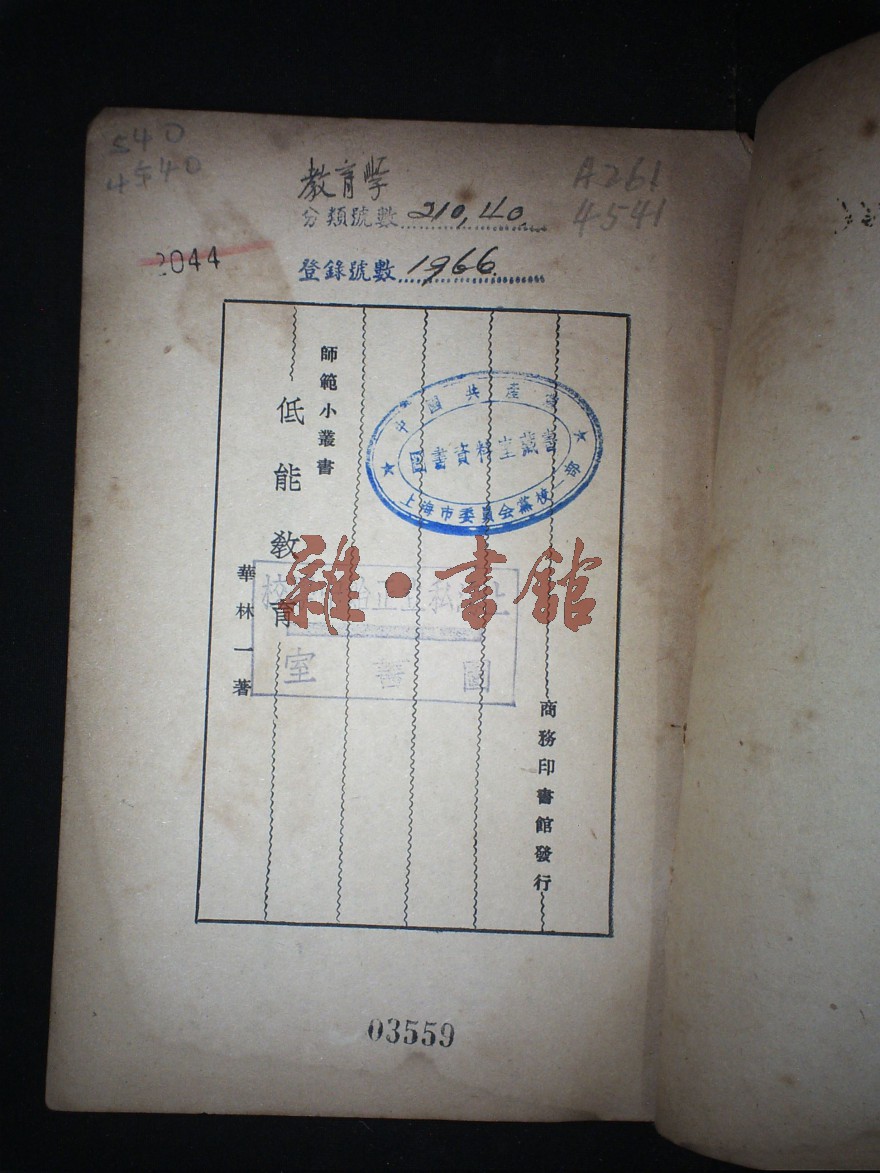 540
4540
教育學
分類號數 210,40
A261
4541
2044
登錄號數 1966.
師範小叢書
低能教育
華林一著
商務印書館發行
中國共產黨
圖書資料室藏書
上海市委員会黨校一部
雜·書館
私立正始
校
圖書室
03559